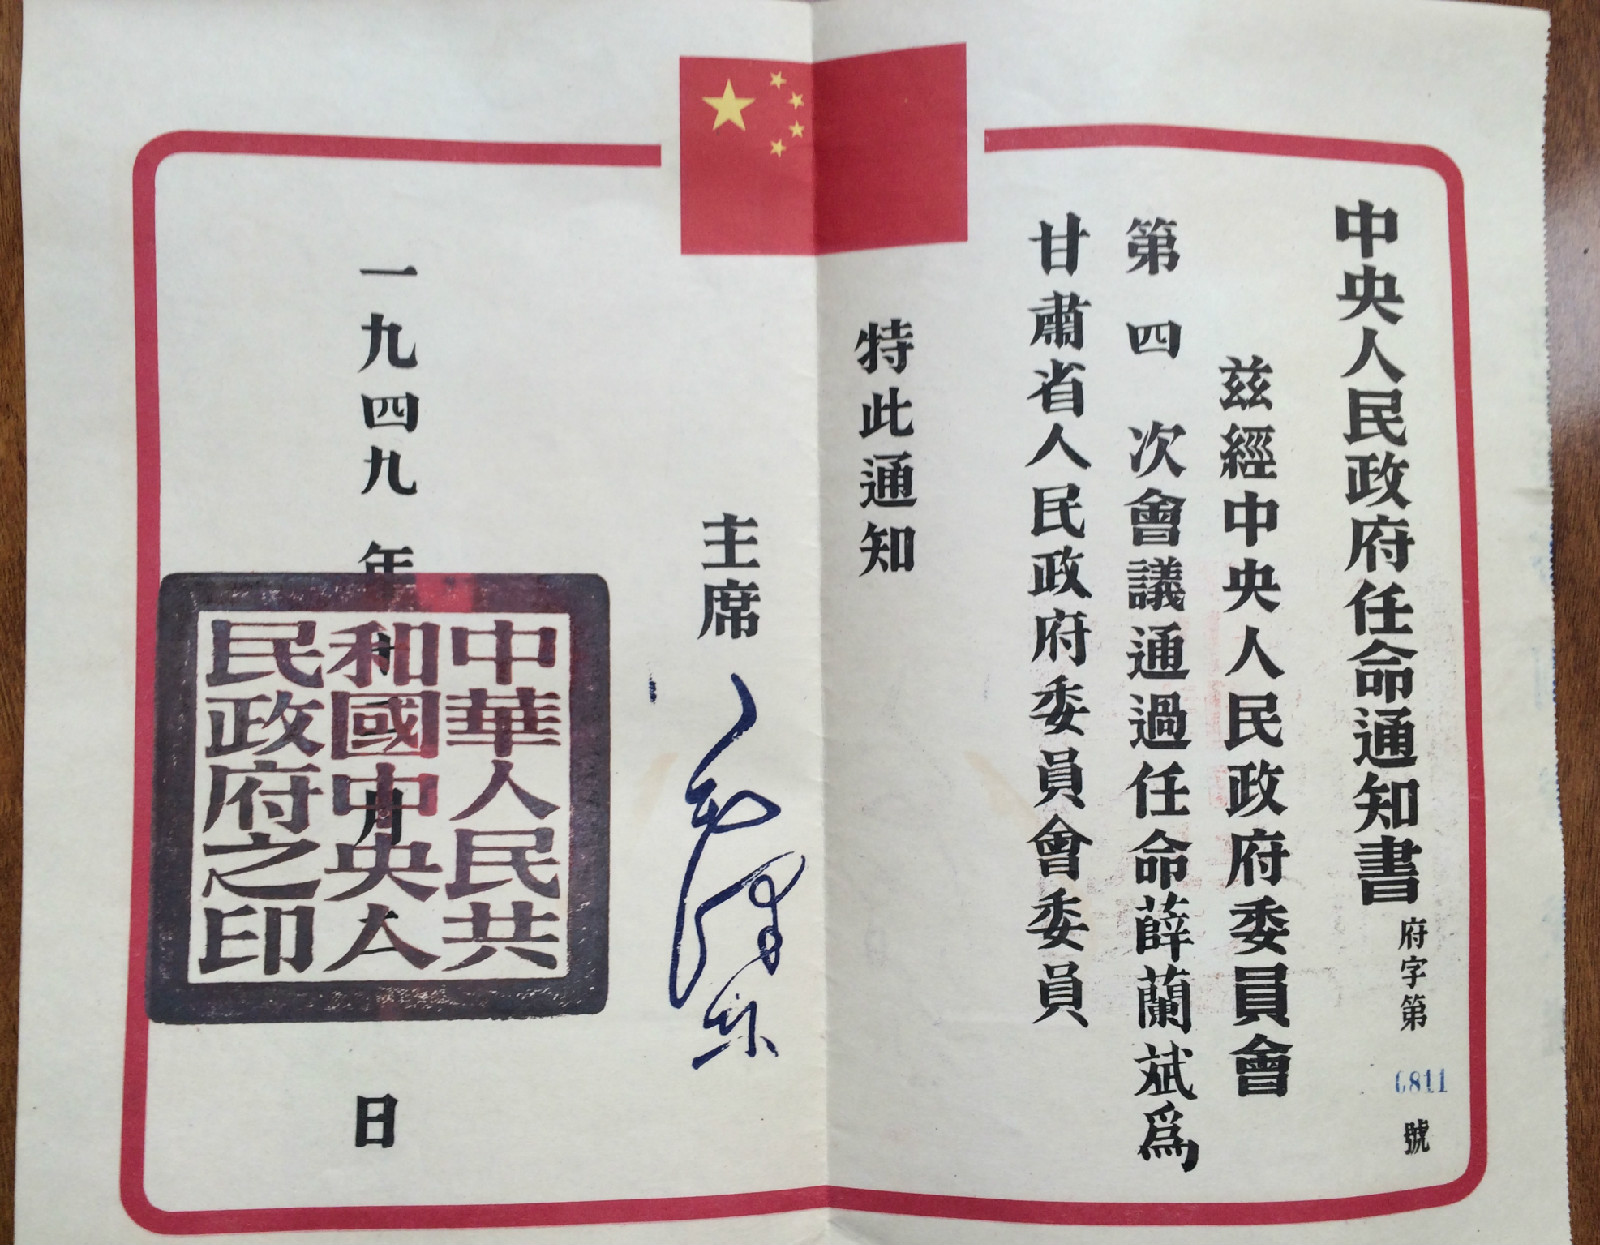 中央人民政府任命通知書 府字第 6811 號
茲經中央人民政府委員會
第四次會議通過任命薛蘭斌爲
甘肅省人民政府委員會委員
特此通知
主席 毛澤東
一九四九年 月 日
中華人民共
和國中央人
民政府之印